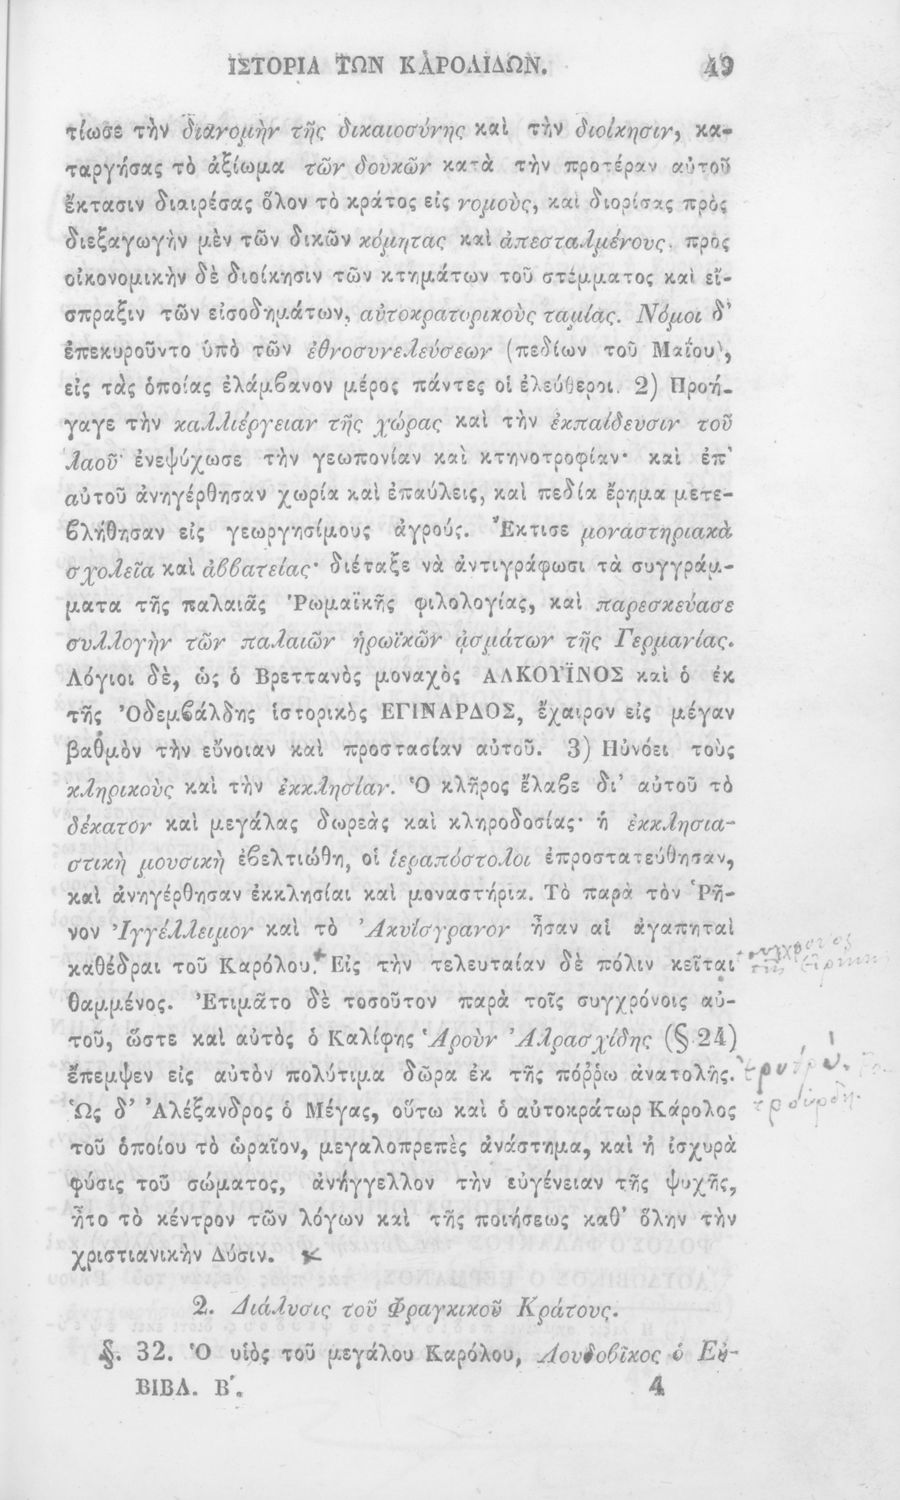 ἹΣΤΟΡΙΑ ΤΩΝ ΚΑΡΟΛΙΔΩΝ. 49
τίωσε τὴν διανομὴν τῆς δικαιοσύνης καὶ τὴν διοίκησιν, κα-
ταργήσας τὸ ἀξίωμα τῶν δουκῶν κατὰ τὴν προτέραν αὐτοῦ
ἔκτασιν διαιρέσας ὅλον τὸ κράτος εἰς νομοὺς, καὶ διορίσας πρὸς
διεξαγωγὴν μὲν τῶν δικῶν κόμητας καὶ ἀπεσταλμένους, πρὸς
οἰκονομικὴν δὲ διοίκησιν τῶν κτημάτων τοῦ στέμματος καὶ εἴ-
σπραξιν τῶν εἰσοδημάτων, αὐτοκρατορικοὺς ταμίας. Νόμοι δ’
ἐπεκυροῦντο ὑπὸ τῶν ἐθνοσυνελεύσεων (πεδίων τοῦ Μαΐου),
εἰς τὰς ὁποίας ἐλάμβανον μέρος πάντες οἱ ἐλεύθεροι. 2) Προή-
γαγε τὴν καλλιέργειαν τῆς χώρας καὶ τὴν ἐκπαίδευσιν τοῦ
λαοῦ· ἐνεψύχωσε τὴν γεωπονίαν καὶ κτηνοτροφίαν· καὶ ἐπ’
αὐτοῦ ἀνηγέρθησαν χωρία καὶ ἐπαύλεις, καὶ πεδία ἔρημα μετε-
βλήθησαν εἰς γεωργησίμους ἀγρούς. Ἔκτισε μοναστηριακὰ
σχολεῖα καὶ ἀββατείας· διέταξε νὰ ἀντιγράφωσι τὰ συγγράμ-
ματα τῆς παλαιᾶς Ῥωμαϊκῆς φιλολογίας, καὶ παρεσκεύασε
συλλογὴν τῶν παλαιῶν ἡρωϊκῶν ᾀσμάτων τῆς Γερμανίας.
Λόγιοι δὲ, ὡς ὁ Βρεττανὸς μοναχὸς ΑΛΚΟΥΪΝΟΣ καὶ ὁ ἐκ
τῆς Ὀδεμβάλδης ἱστορικὸς ΕΓΙΝΑΡΔΟΣ, ἔχαιρον εἰς μέγαν
βαθμὸν τὴν εὔνοιαν καὶ προστασίαν αὐτοῦ. 3) Ηὐνόει τοὺς
κληρικοὺς καὶ τὴν ἐκκλησίαν. Ὁ κλῆρος ἔλαβε δι’ αὐτοῦ τὸ
δέκατον καὶ μεγάλας δωρεὰς καὶ κληροδοσίας· ἡ ἐκκλησια-
στικὴ μουσικὴ ἐβελτιώθη, οἱ ἱεραπόστολοι ἐπροστατεύθησαν,
καὶ ἀνηγέρθησαν ἐκκλησίαι καὶ μοναστήρια. Τὸ παρὰ τὸν Ῥῆ-
νον Ἰγγέλλειμον καὶ τὸ Ἀκυΐσγρανον ἦσαν αἱ ἀγαπηταὶ
καθέδραι τοῦ Καρόλου. Εἰς τὴν τελευταίαν δὲ πόλιν κεῖται
θαμμένος. Ἐτιμᾶτο δὲ τοσοῦτον παρὰ τοῖς συγχρόνοις αὐ-
τοῦ, ὥστε καὶ αὐτὸς ὁ Καλίφης Ἁροὺν Ἀλρασχίδης (§ 24)
ἔπεμψεν εἰς αὐτὸν πολύτιμα δῶρα ἐκ τῆς πόῤῥω ἀνατολῆς.
Ὡς δ’ Ἀλέξανδρος ὁ Μέγας, οὕτω καὶ ὁ αὐτοκράτωρ Κάρολος
τοῦ ὁποίου τὸ ὡραῖον, μεγαλοπρεπὲς ἀνάστημα, καὶ ἡ ἰσχυρὰ
φύσις τοῦ σώματος, ἀνήγγελλον τὴν εὐγένειαν τῆς ψυχῆς,
ἦτο τὸ κέντρον τῶν λόγων καὶ τῆς ποιήσεως καθ’ ὅλην τὴν
χριστιανικὴν Δύσιν.
2. Διάλυσις τοῦ Φραγκικοῦ Κράτους.
§. 32. Ὁ υἱὸς τοῦ μεγάλου Καρόλου, Λουδοβῖκος ὁ Εὐ-
ΒΙΒΛ. Β΄. 4
σύγχρονος
τῆς Εἰρήνης